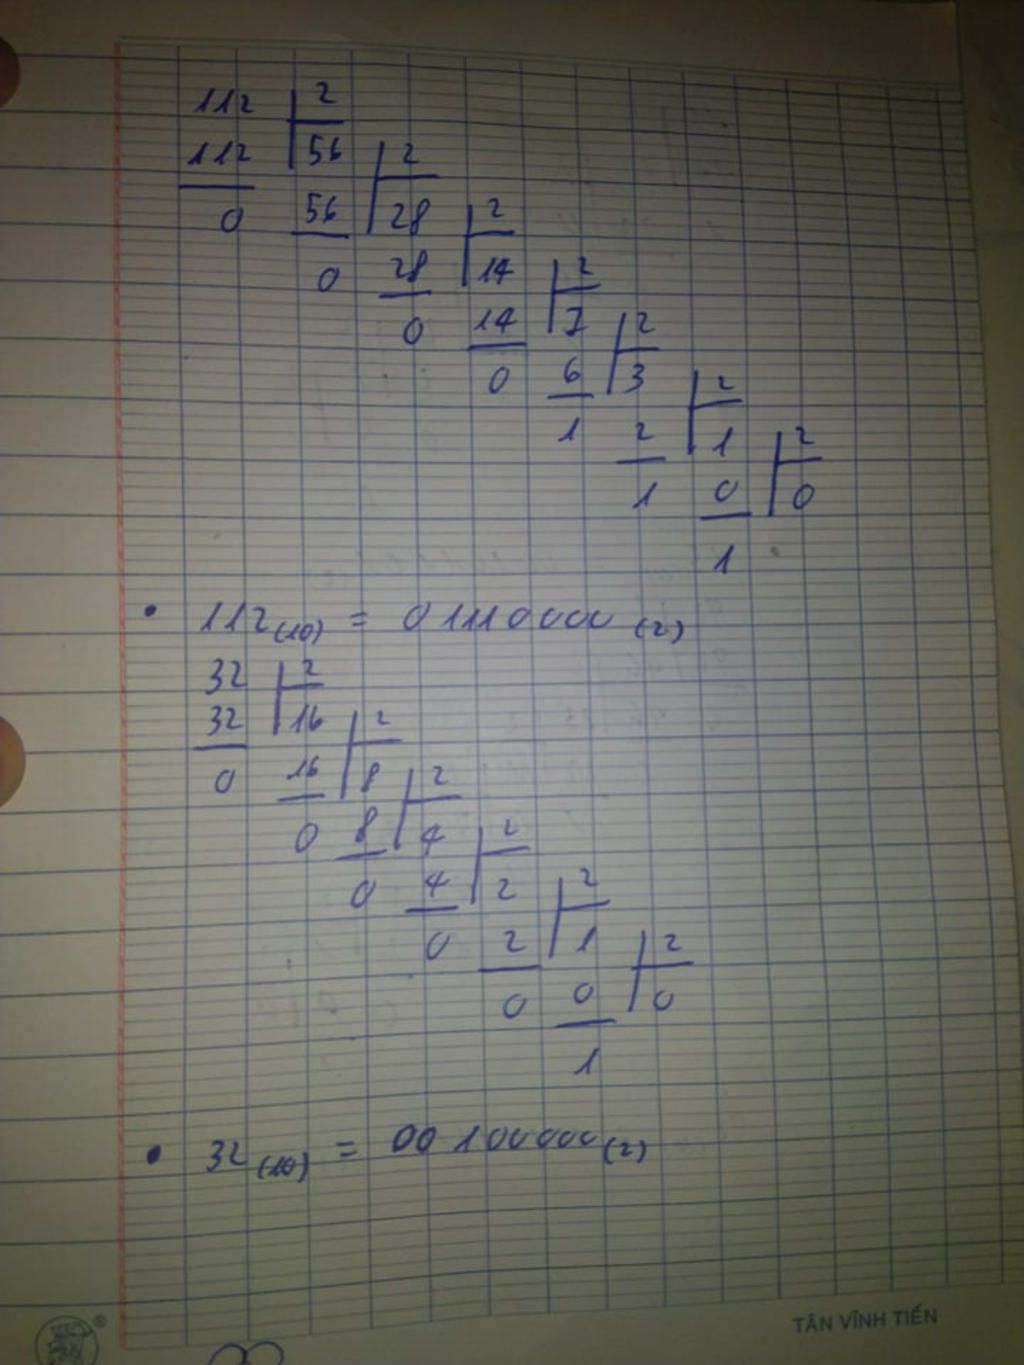 112 2
112 56 2
0 56 28 2
0 28 14 2
0 14 7 2
0 6 3 2
1 2 1 2
1 0 0
1
• 112(10) = 01110000 (2)
32 2
32 16 2
0 16 8 2
0 8 4 2
0 4 2 2
0 2 1 2
0 0 0
1
• 32(10) = 00100000(2)
®
TÂN VĨNH TIẾN